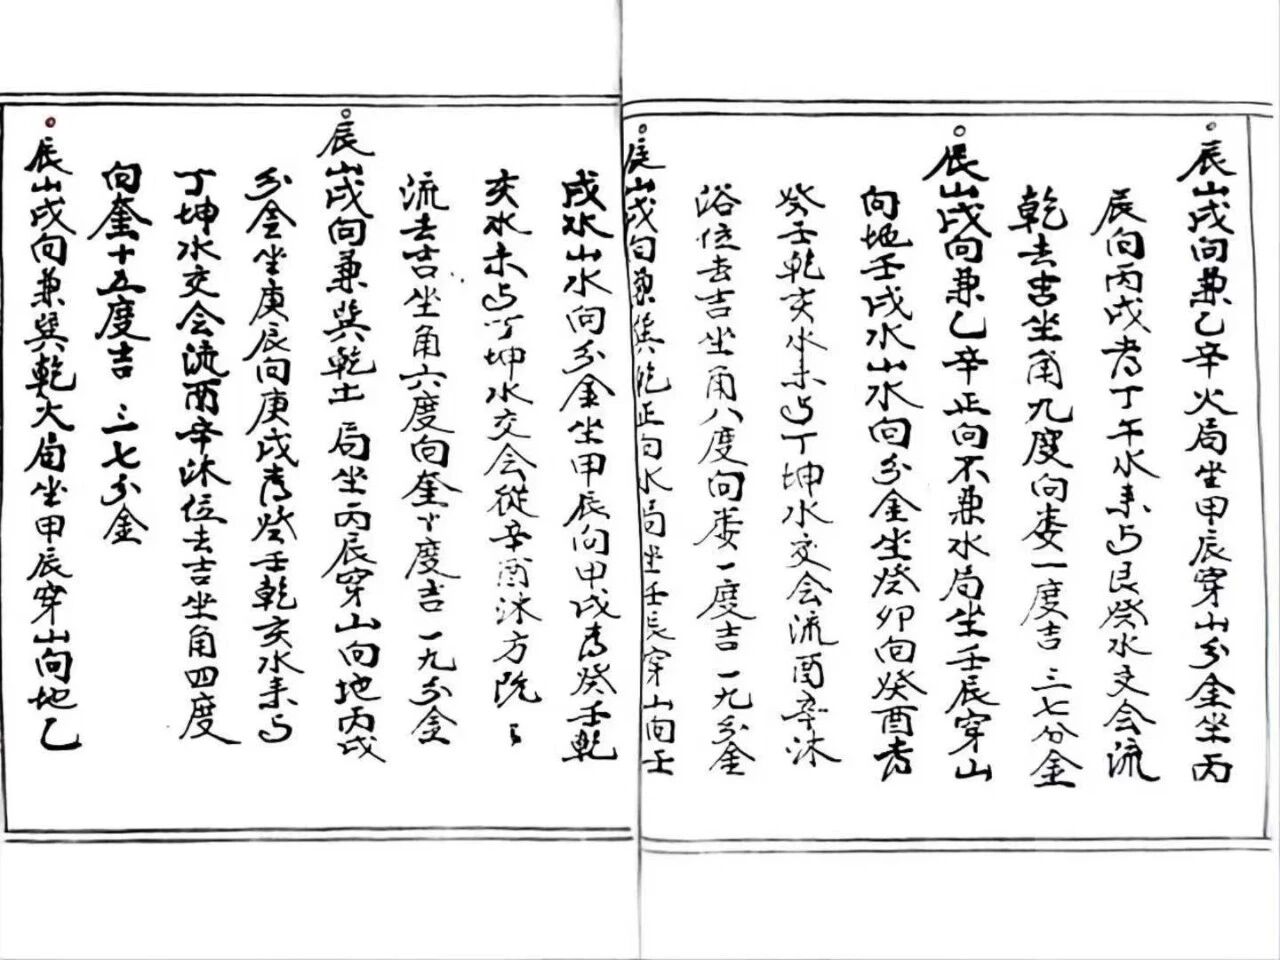 ○辰山戌向兼乙辛火局坐甲辰穿山分金坐丙
辰向丙戌者丁午水耒与艮癸水交会流
乾去吉坐角九度向娄一度吉三七分金
○辰山戌向兼乙辛正向不兼水局坐壬辰穿山
向地壬戌水山水向分金坐癸卯向癸酉者
癸壬乾亥水耒与丁坤水交会流酉辛沐
浴位去吉坐角八度向娄一度吉一九分金
○辰山戌向兼巽乾正向水局坐壬辰穿山向壬
戌水山水向分金坐甲辰向甲戌者癸壬乾
亥水耒与丁坤水交会從辛酉沐方
流去吉坐角六度向奎十度吉一九分金
○辰山戌向兼巽乾土局坐丙辰穿山向地丙戌
分金坐庚辰向庚戌者癸壬乾亥水耒与
丁坤水交会流酉辛沐位去吉坐角四度
向奎十五度吉三七分金
○辰山戌向兼巽乾火局坐甲辰穿山向地乙